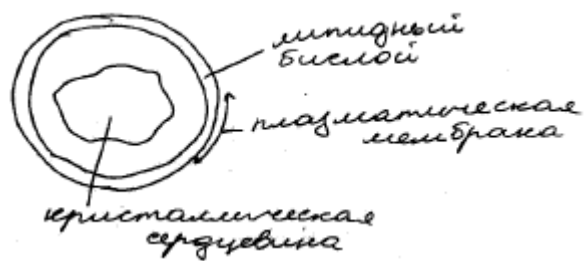 липидный
бислой
плазматическая
мембрана
кристаллическая
сердцевина